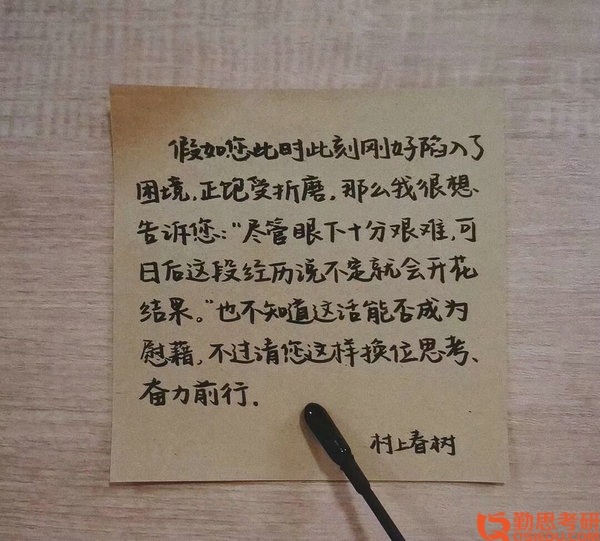 假如您此时此刻刚好陷入了
困境,正饱受折磨,那么我很想
告诉您:“尽管眼下十分艰难,可
日后这段经历说不定就会开花
结果。”也不知道这话能否成为
慰藉,不过请您这样换位思考、
奋力前行.
村上春树
勤思考研